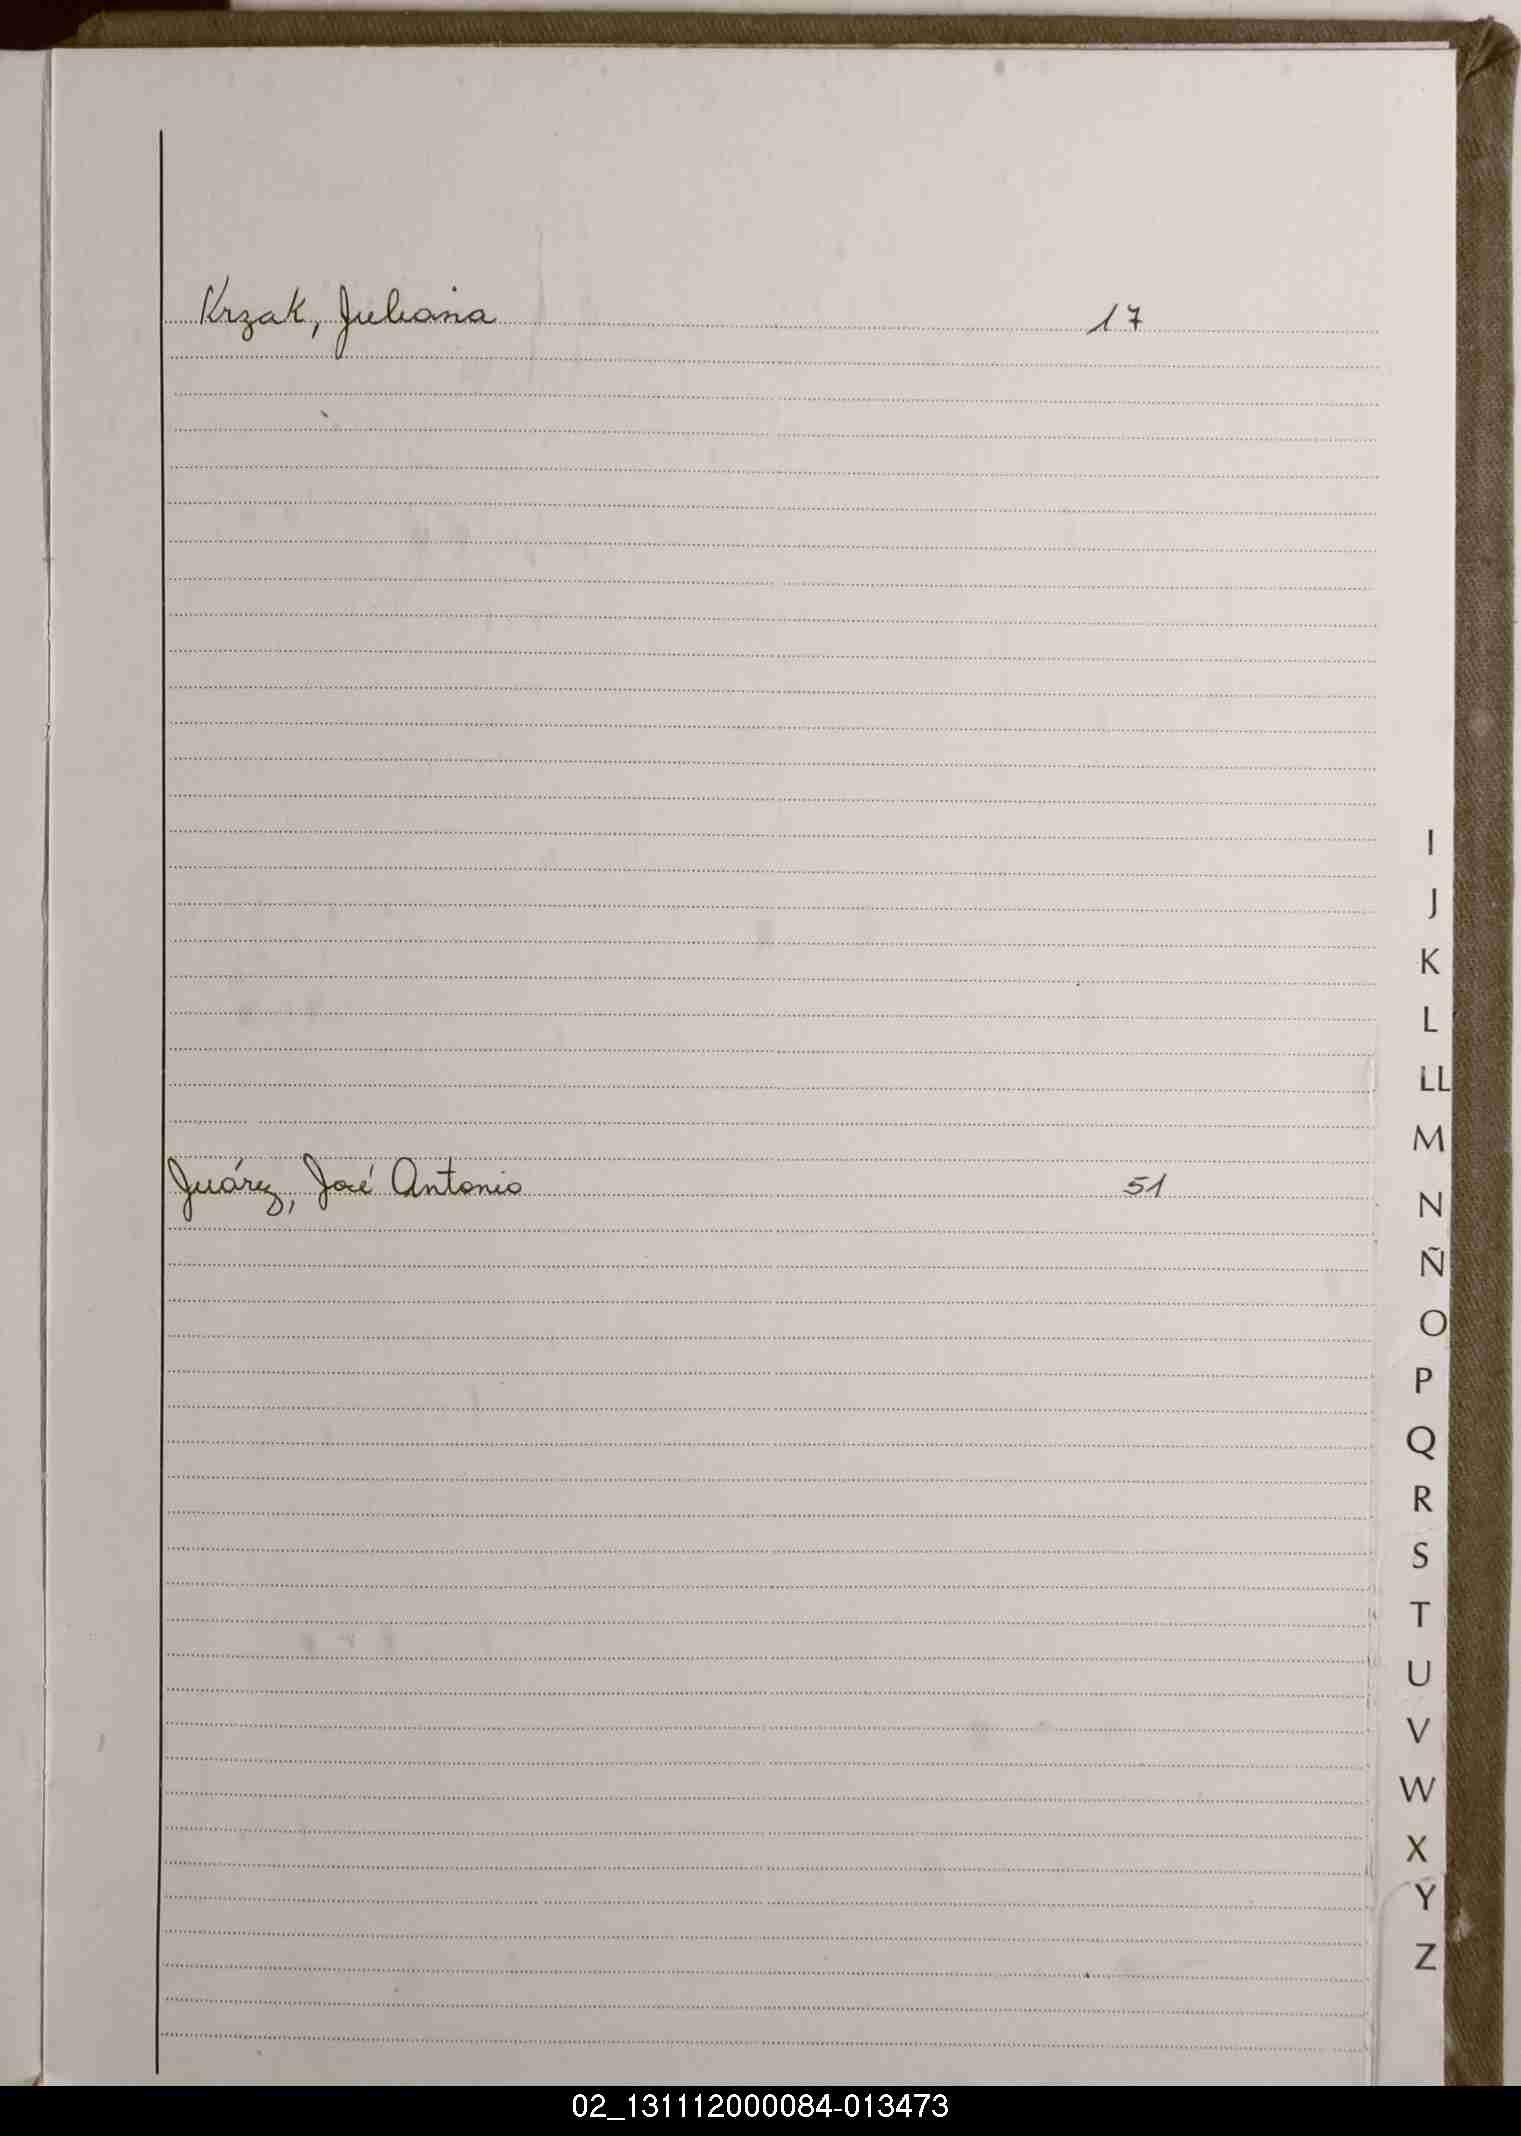 Krzak, Juliana 17
I
J
K
L
LL
M
Juárez, José Antonio 51
N
Ñ
O
P
Q
R
S
T
U
V
W
X
Y
Z
02_131112000084-013473